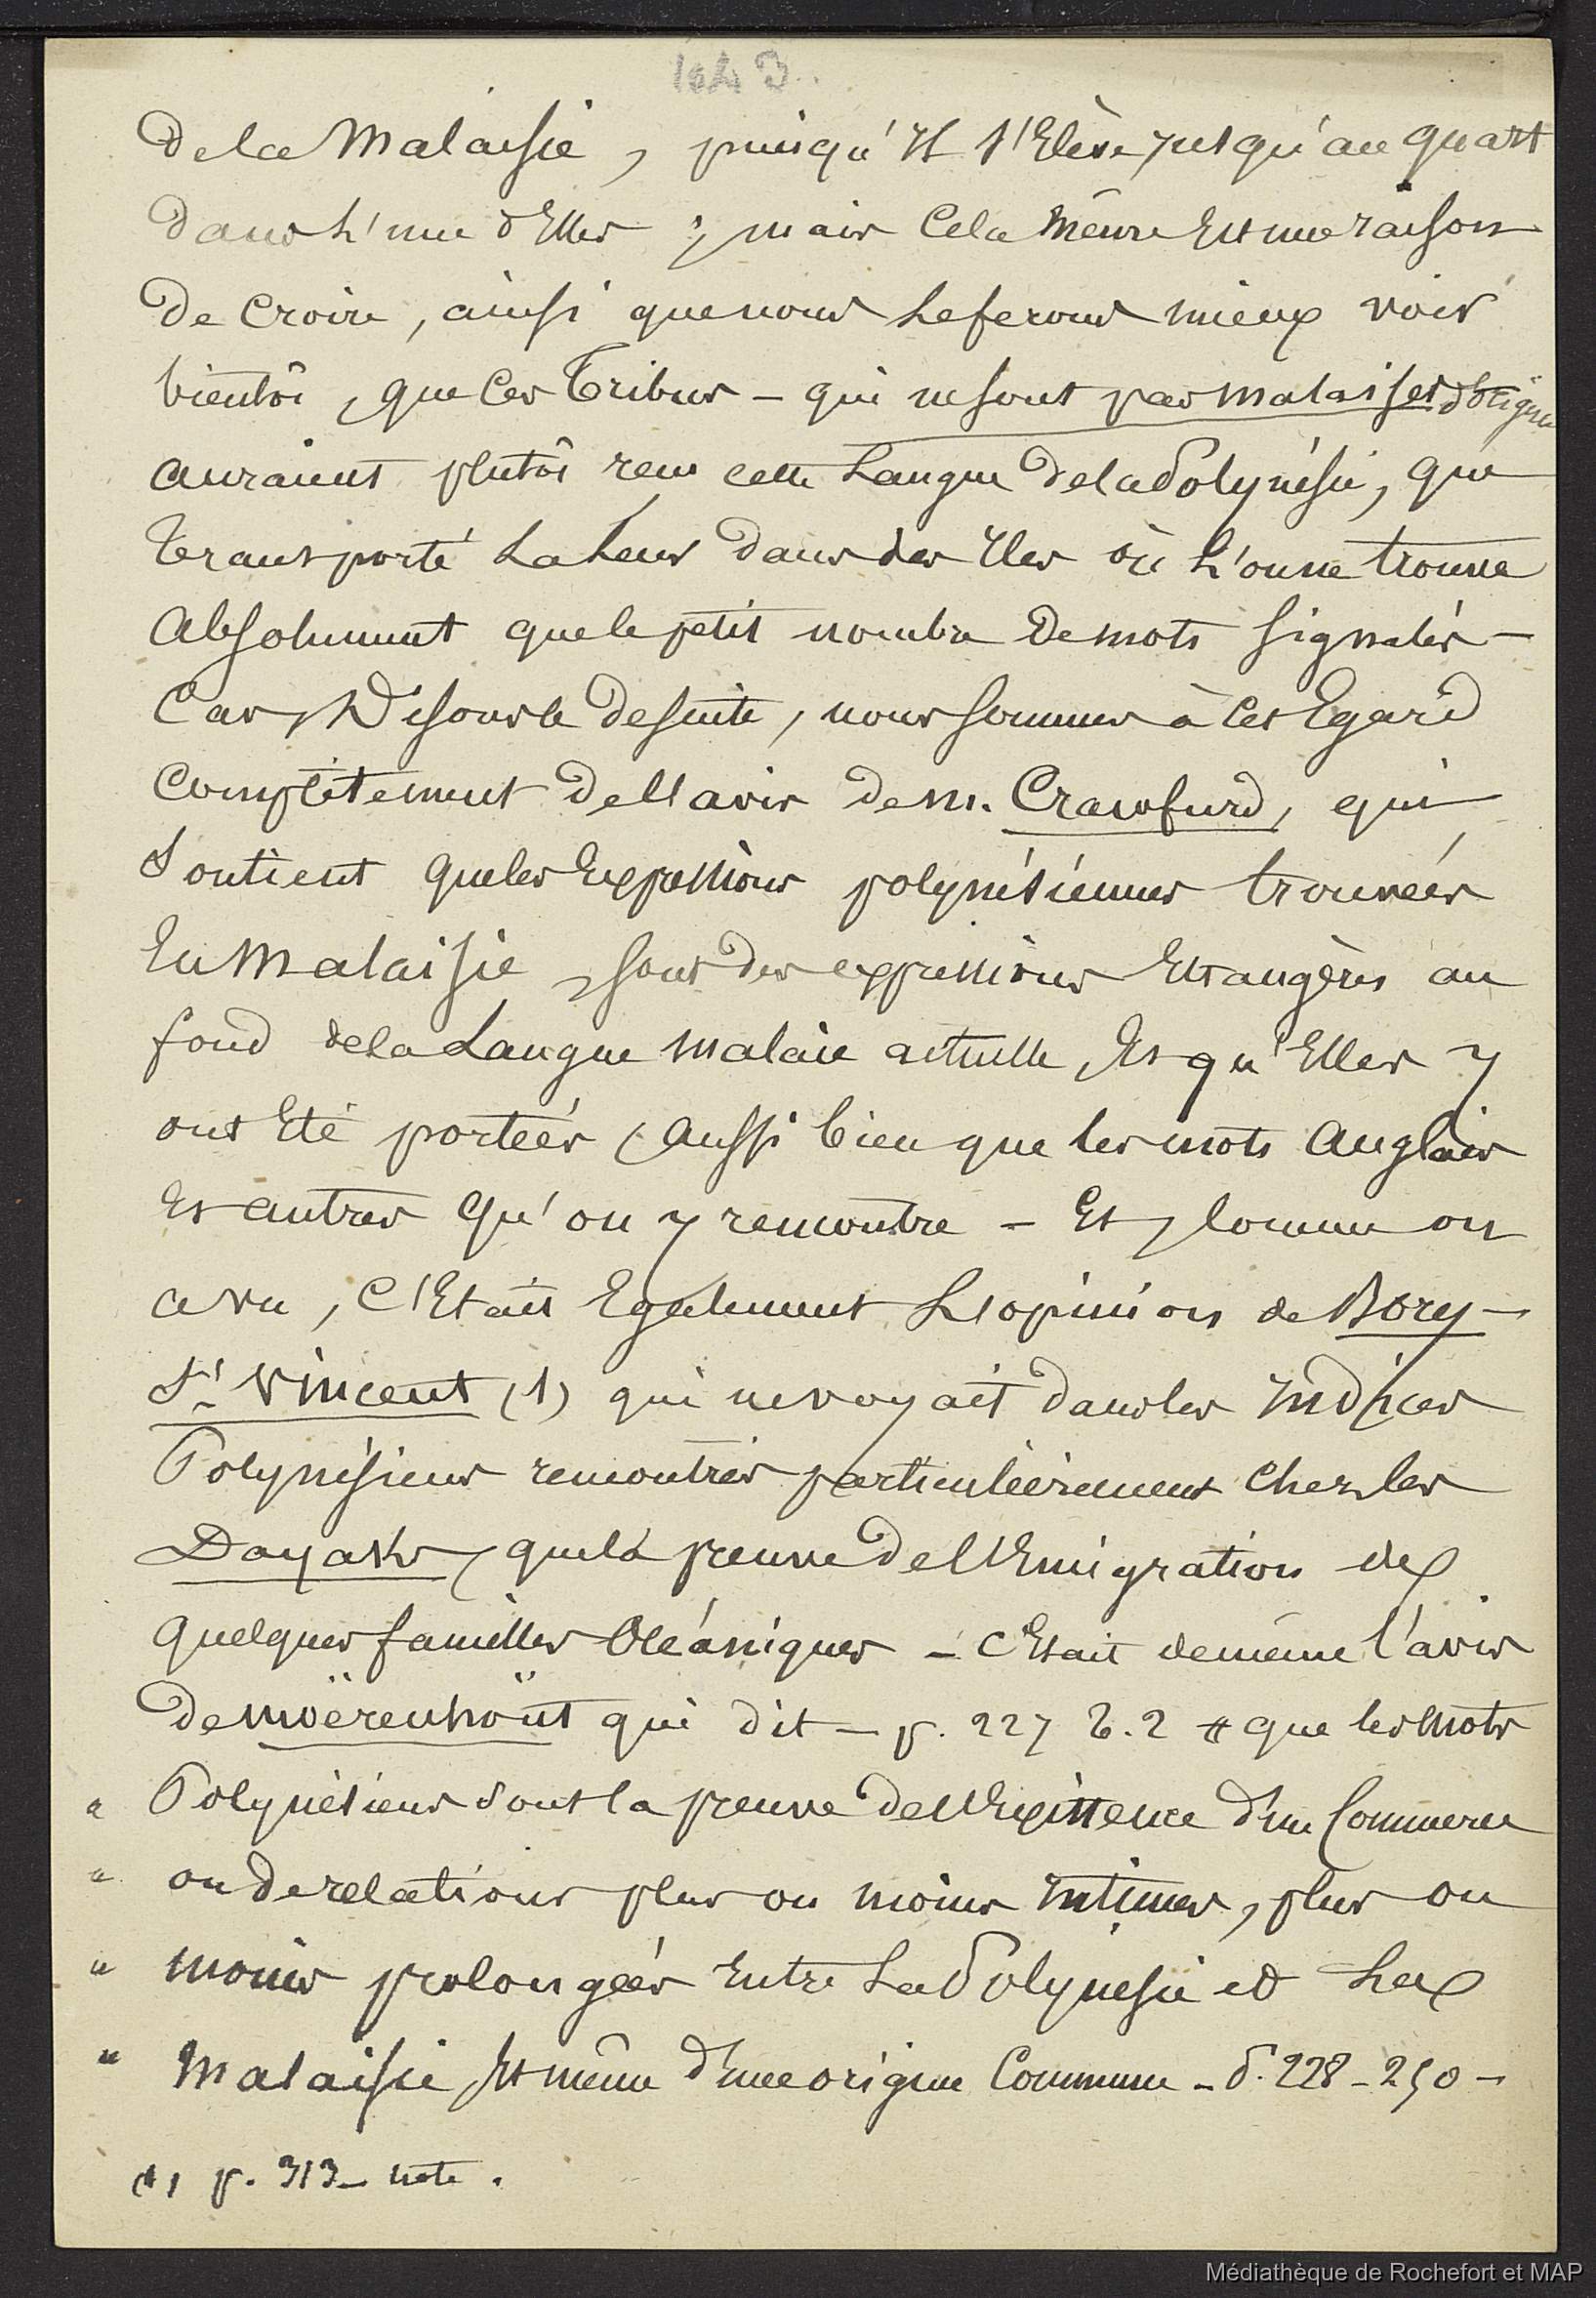 1043.
de la Malaisie, puisqu'il s'élève jusqu'au quart
dans l'une d'elles ; mais cela même est une raison
de croire, ainsi que nous le ferons mieux voir
bientôt, que ces tribus - qui ne sont pas malaises d'origine
auraient plutôt reçu cette langue de la Polynésie, que
transporté la leur dans des îles où l'on ne trouve
absolument que le petit nombre de mots signalés -
Car, disons le de suite, nous sommes à cet égard
complètement de l'avis de m. Crawfurd, qui
soutient que les expressions polynésiennes trouvées
en Malaisie, sont des expressions étrangères au
fond de la langue malaie actuelle, et qu'elles y
ont été portées, aussi bien que les mots anglais
et autres qu'on y rencontre - Et, comme on
a vu, c'était également l'opinion de Bory -
St Vincent (1) qui ne voyait dans les indices
Polynésiens rencontrés particulièrement chez les
Dayaks, que la preuve de l'émigration de
quelques familles Océaniques - c'était de même l'avis
de Moërenhoüt qui dit - p. 227 t. 2 que les mots
" Polynésiens sont la preuve de l'existence d'un commerce
" ou de relations plus ou moins intimes, plus ou
" moins prolongées entre la Polynésie et la
" Malaisie, et même d'une origine commune - P. 228 - 250 -
(1) p. 313 - note.
Médiathèque de Rochefort et MAP